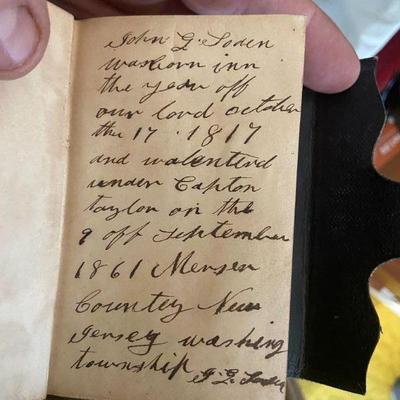 John G. Soden
was born inn
the year off
our lord october
the 17 . 1817
and walenterd
under Capton
taylor on the
9 off September
1861 Mersen
Country New
Jersey washing
township J G Soden